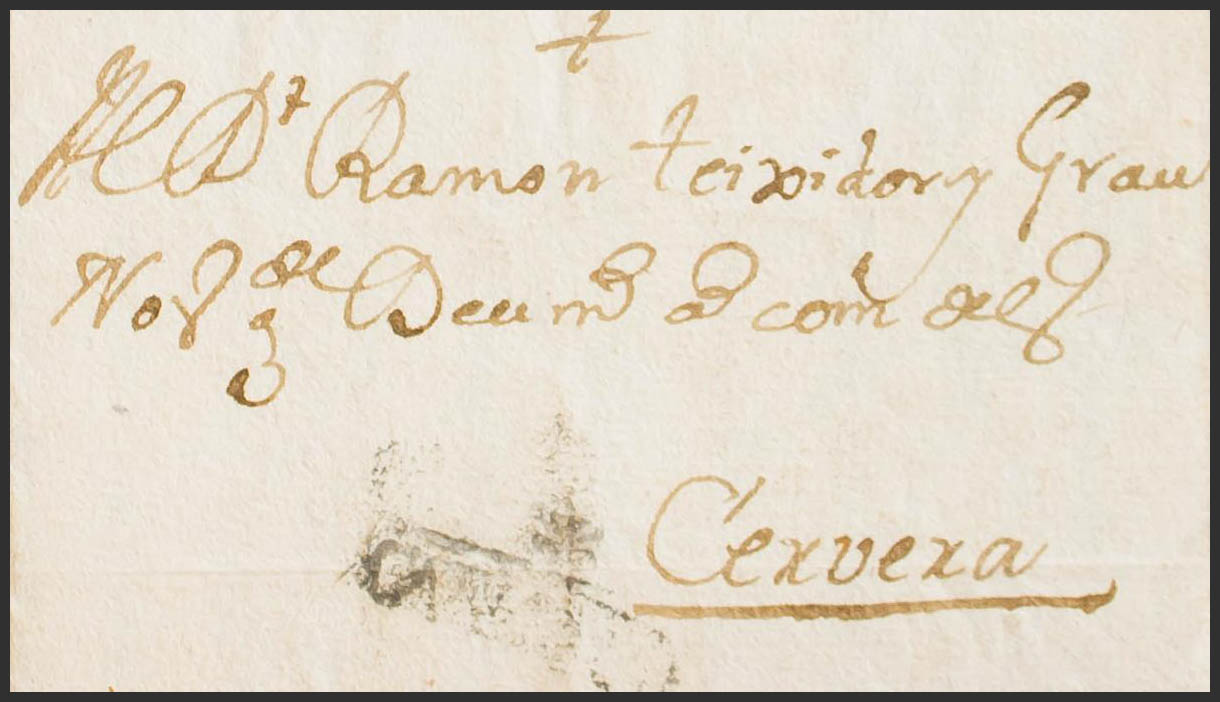 Al Dr Ramon teixidor y Grau
Nor gde Deu md ad com del
Cervera